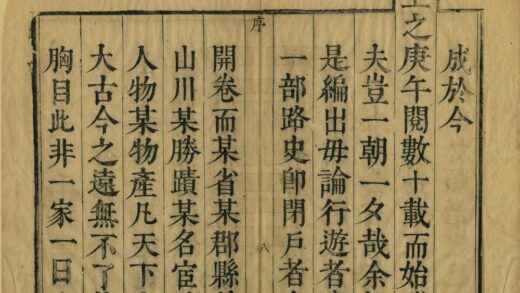 成於今
上之庚午閱數十載而始
夫豈一朝一夕哉余
是編出毋論行遊者
一部路史卽閉戶者
序
八
開卷而某省某郡縣
山川某勝蹟某名宦
人物某物產凡天下
大古今之遠無不了
胸目此非一家一日